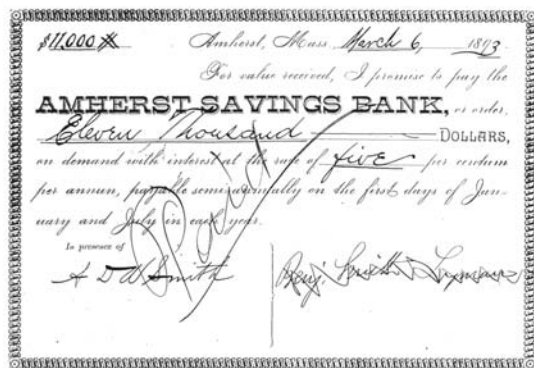 $11,000 Amherst, Mass March 6, 1893
For value received, I promise to pay the
AMHERST SAVINGS BANK, or order,
Eleven Thousand DOLLARS,
on demand with interest at the rate of five per centum
per annum, payable semi-annually on the first days of Jan-
uary and July in each year.
Paid
In presence of
Smith Benj. Smith